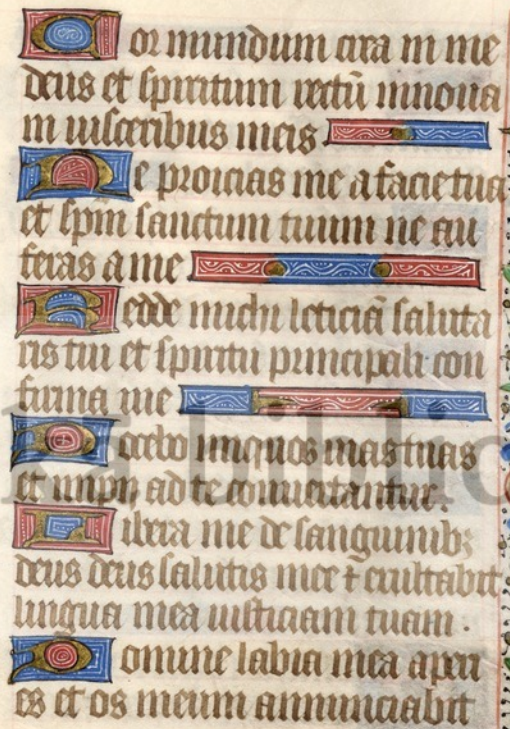 Cor mundum crea in me
deus et spiritum rectū innoua
in uisceribus meis
Ne proicias me a facie tua
et sp̄m sanctum tuum ne au
feras a me
Redde michi leticiā saluta
ris tui et spiritu principali con
firma me
Docebo iniquos uias tuas
et impij ad te conuertantur.
Libera me de sanguinibꝫ
deus deus salutis mee ⁊ exultabit
lingua mea iusticiam tuam.
Domine labia mea aperi
es et os meum annunciabit